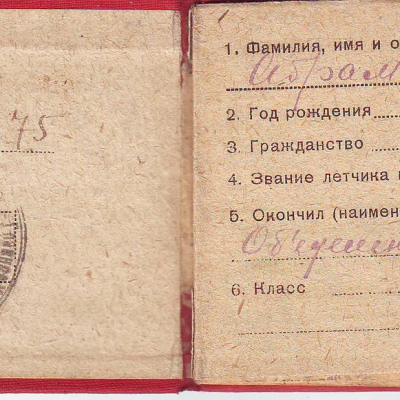 75
1. Фамилия, имя и о
Абрам
2. Год рождения
3. Гражданство
4. Звание летчика
5. Окончил (наимен
Объединен
6. Класс